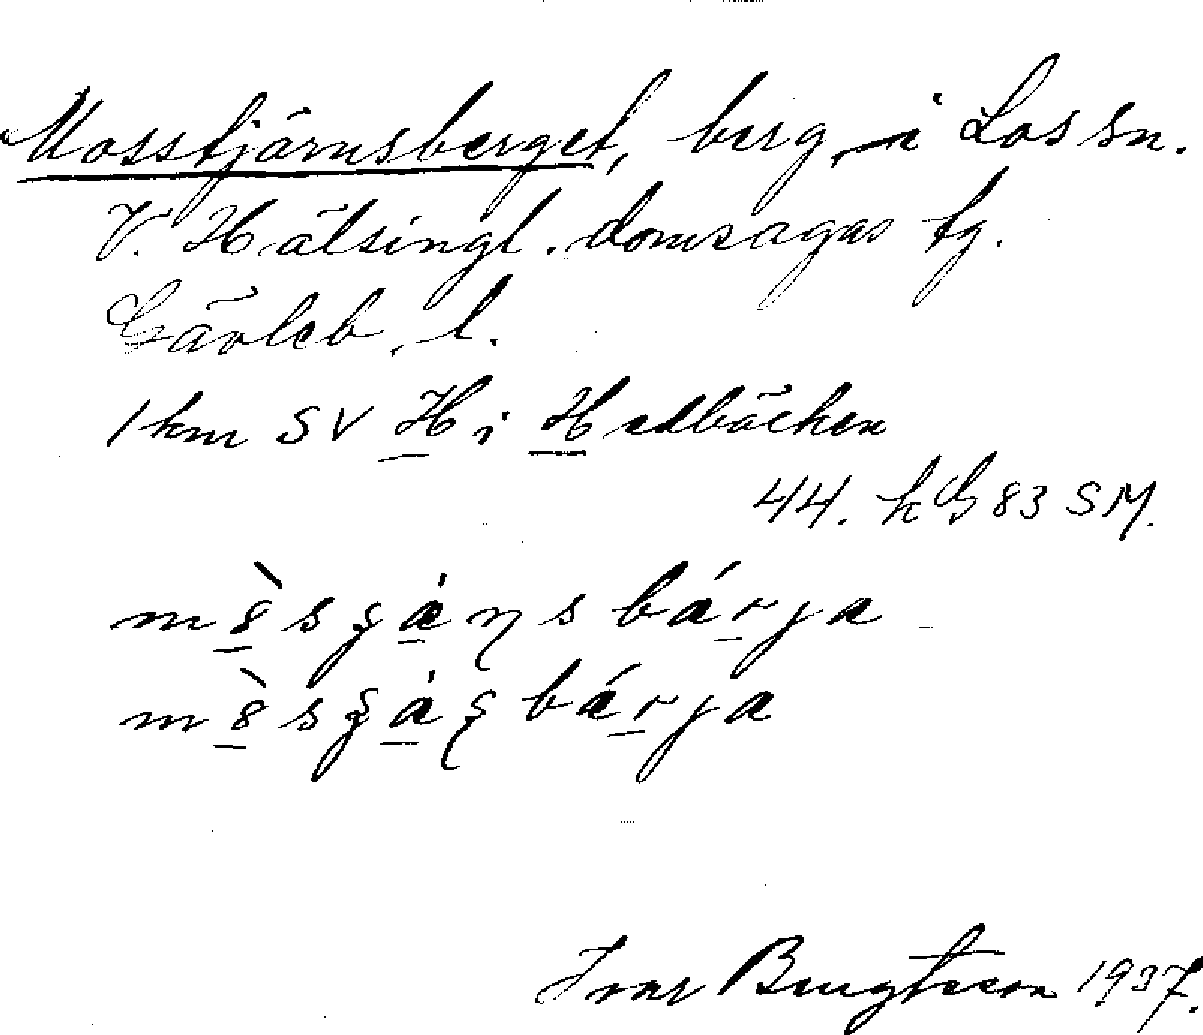 Mosstjärnsberget, berg, i Los sn.
V. Hälsingl. domsagas tg.
Gävleb. l.
1 km SV H i Hedbäcken
44. h G 83 SM.
Ivar Bengtsson 1937.